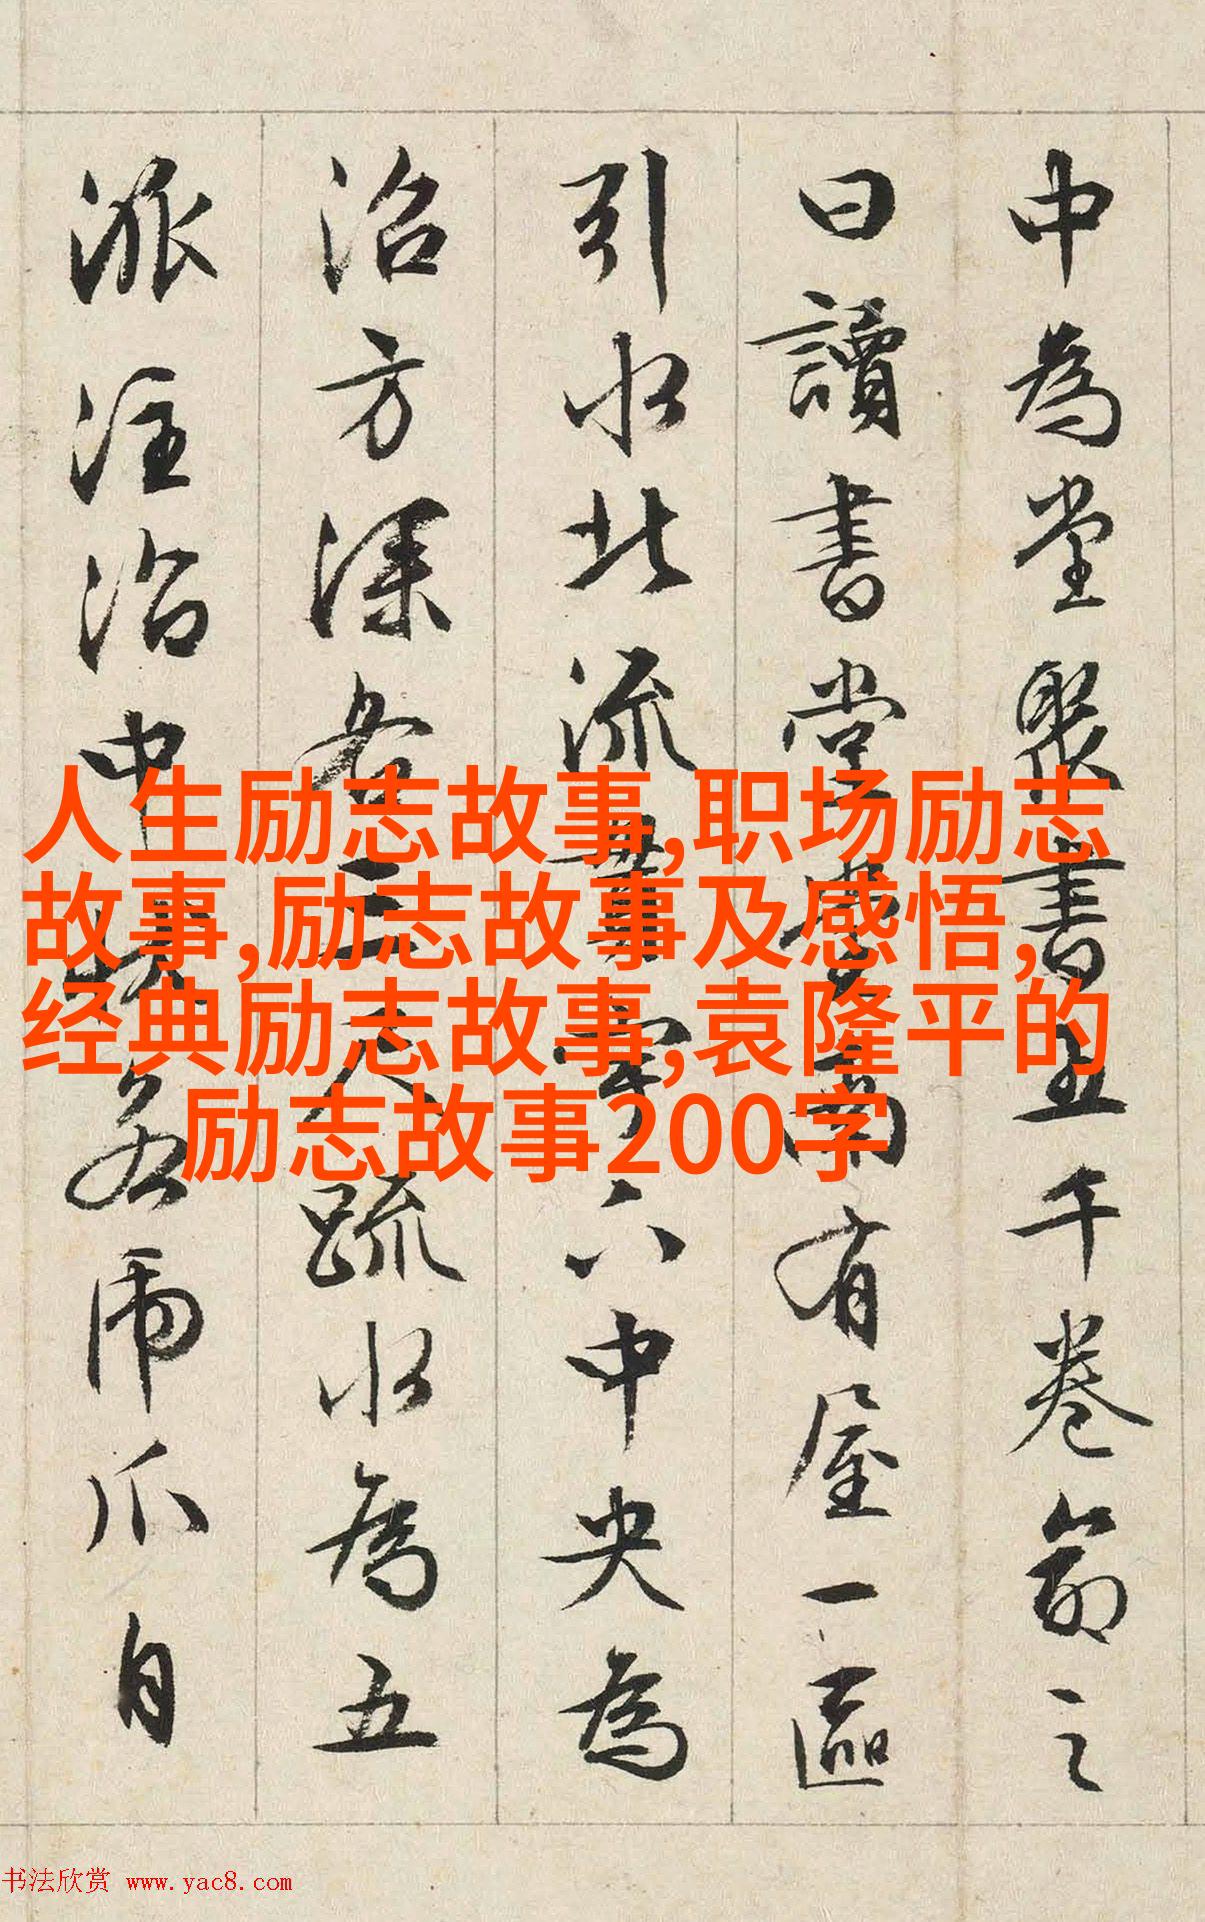 中為堂聚書五千卷命之
曰讀書堂堂南有屋一區
引水北流貫宇下中央為
沼方深各三尺疏水為五
派注沼中狀若虎爪自
人生励志故事,职场励志
故事,励志故事及感悟,
经典励志故事,袁隆平的
励志故事200字
书法欣赏 www.yac8.com